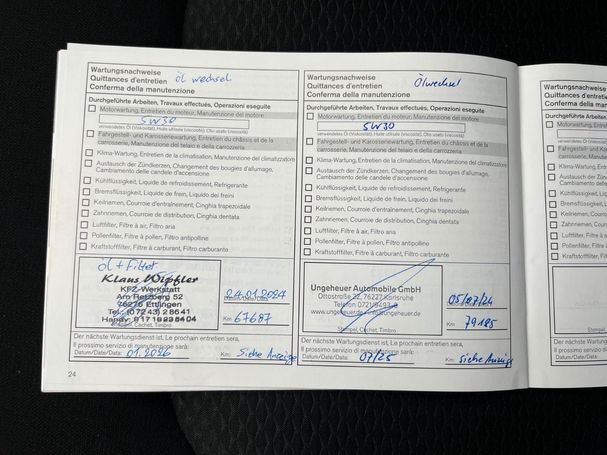 Wartungsnachweise
Quittances d'entretien
Conferma della manutenzione
öl wechsel
Durchgeführte Arbeiten, Travaux effectués, Operazioni eseguite
Motorwartung, Entretien du moteur, Manutenzione del motore
5W30
verwendetes Öl (Viskosität), Huile utilisée (viscosité), Olio usato (viscosità)
Fahrgestell- und Karosseriewartung, Entretien du châssis et de la
carrosserie, Manutenzione del telaio e della carrozzeria
Klima-Wartung, Entretien de la climatisation, Manutenzione del climatizzatore
Austausch der Zündkerzen, Changement des bougies d'allumage,
Cambiamento delle candele d'accensione
Kühlflüssigkeit, Liquide de refroidissement, Refrigerante
Bremsflüssigkeit, Liquide de frein, Liquido dei freini
Keilriemen, Courroie d'entraînement, Cinghia trapezoidale
Zahnriemen, Courroie de distribution, Cinghia dentata
Luftfilter, Filtre à air, Filtro aria
Pollenfilter, Filtre à pollen, Filtro antipolline
Kraftstofffilter, Filtre à carburant, Filtro carburante
öl + Filter
Klaus Wipfler
KFZ-Werkstatt
Am Retzberg 52
76275 Ettlingen
Tel. (07243) 28641
24.01.2024
Datum/Date/Data:
Km: 67687
Stempel, Cachet, Timbro
Der nächste Wartungsdienst ist, Le prochain entretien sera,
Il prossimo servizio di manutenzione sarà:
Datum/Date/Data: 01.2026 Km: Siehe Anzeige
24
Wartungsnachweise
Quittances d'entretien
Conferma della manutenzione
Ölwechsel
Durchgeführte Arbeiten, Travaux effectués, Operazioni eseguite
Motorwartung, Entretien du moteur, Manutenzione del motore
5W30
verwendetes Öl (Viskosität), Huile utilisée (viscosité), Olio usato (viscosità)
Fahrgestell- und Karosseriewartung, Entretien du châssis et de la
carrosserie, Manutenzione del telaio e della carrozzeria
Klima-Wartung, Entretien de la climatisation, Manutenzione del climatizzatore
Austausch der Zündkerzen, Changement des bougies d'allumage,
Cambiamento delle candele d'accensione
Kühlflüssigkeit, Liquide de refroidissement, Refrigerante
Bremsflüssigkeit, Liquide de frein, Liquido dei freini
Keilriemen, Courroie d'entraînement, Cinghia trapezoidale
Zahnriemen, Courroie de distribution, Cinghia dentata
Luftfilter, Filtre à air, Filtro aria
Pollenfilter, Filtre à pollen, Filtro antipolline
Kraftstofffilter, Filtre à carburant, Filtro carburante
Ungeheuer Automobile GmbH
Ottostraße 22, 76227 Karlsruhe
Telefon
05/07/24
Datum/Date/Data:
Km: 79185
Stempel, Cachet, Timbro
Der nächste Wartungsdienst ist, Le prochain entretien sera,
Il prossimo servizio di manutenzione sarà:
Datum/Date/Data: 07/25 Km: Siehe Anzeige
Wartungsnachweise
Quittances d'entretien
Conferma della
Durchgeführte Arbeiten
Motorwartung, Entretien
verwendetes Öl (Viskosität)
Fahrgestell- und
carrosserie,
Klima-Wartung,
Austausch der
Cambiamento
Kühlflüssigkeit
Bremsflüssigkeit
Keilriemen, C
Zahnriemen,
Luftfilter, Filtre
Pollenfilter, Filtre
Kraftstofffilter,
Der nächste Wartungs
Il prossimo servizio
Datum/Date/Data: